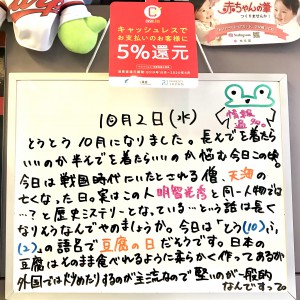 キャッシュレスで
お支払いのお客様に
5%還元
赤ちゃんの筆
10月2日(水)
情報
過多。
とうとう10月になりました。長そでを着たら
いいのか半そでを着たらいいのか悩む今日この頃。
今日は戦国時代にいたとされる僧、天海の
亡くなった日。実はこの人明智光秀と同一人物では
…?と歴史ミステリーとなっている…という話は長く
なりそうなんでやめましょうか。今日は「とう(10)ふ
(2)」の語呂で豆腐の日だそうです。日本の
豆腐はそのまま食べれるように柔らかく作ってあるが
外国では炒めたりするのが主流なので堅いのが一般的
なんですって。